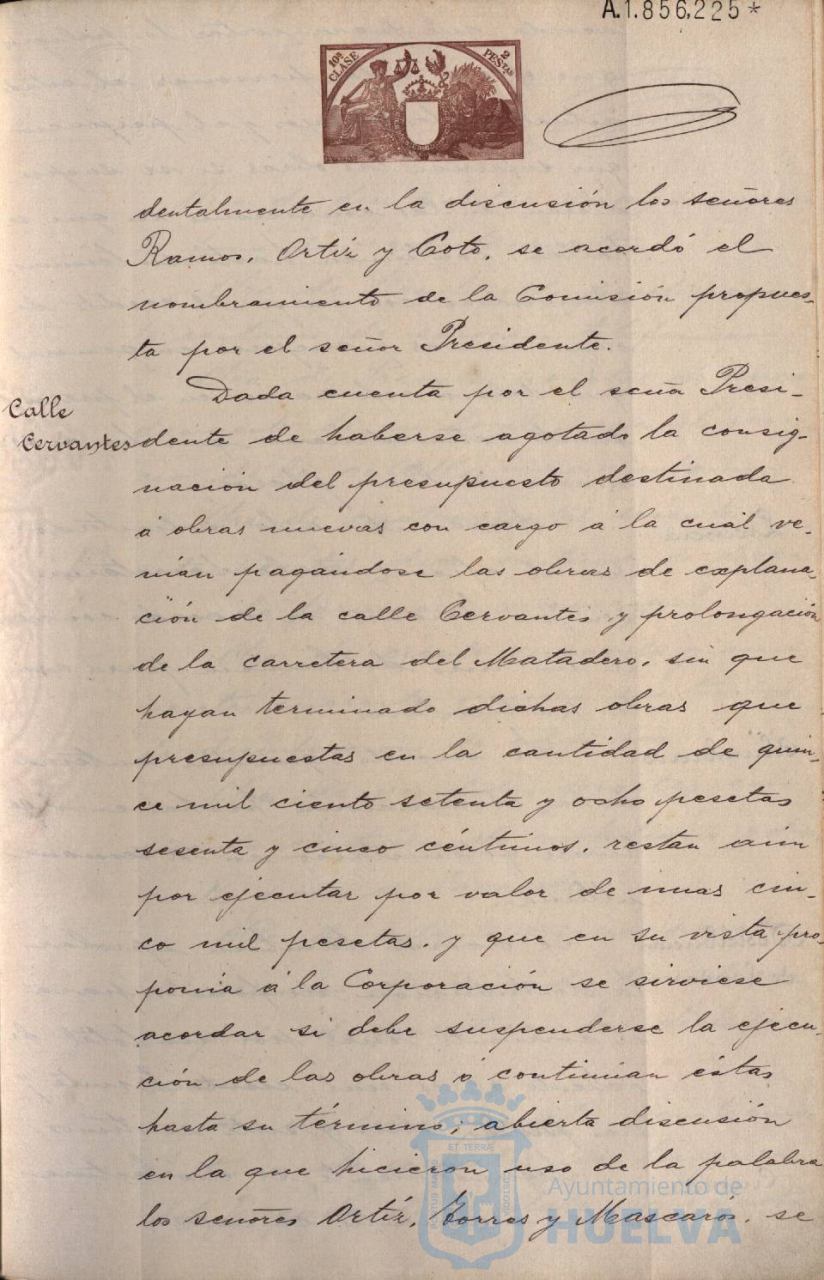 A.1.856,225*
10ª CLASE
2 PESTAS
dentalmente en la discusión los señores
Ramos, Ortíz y Coto, se acordó el
nombramiento de la Comisión propues-
ta por el señor Presidente.
Calle
Cervantes
Dada cuenta por el señor Presi-
dente de haberse agotado la consig-
nación del presupuesto destinada
á obras nuevas con cargo á la cual ve-
nían pagándose las obras de explana-
ción de la calle Cervantes y prolongación
de la carretera del Matadero, sin que
hayan terminado dichas obras que
presupuestas en la cantidad de quin-
ce mil ciento setenta y ocho pesetas
sesenta y cinco céntimos, restan aún
por ejecutar por valor de unas cin-
co mil pesetas, y que en su vista pro-
ponía á la Corporación se sirviese
acordar si debe suspenderse la ejecu-
ción de las obras ó continúan éstas
hasta su término; abierta discusión
en la que hicieron uso de la palabra
los señores Ortíz, Torres y Mascarós, se
Ayuntamiento de
HUELVA